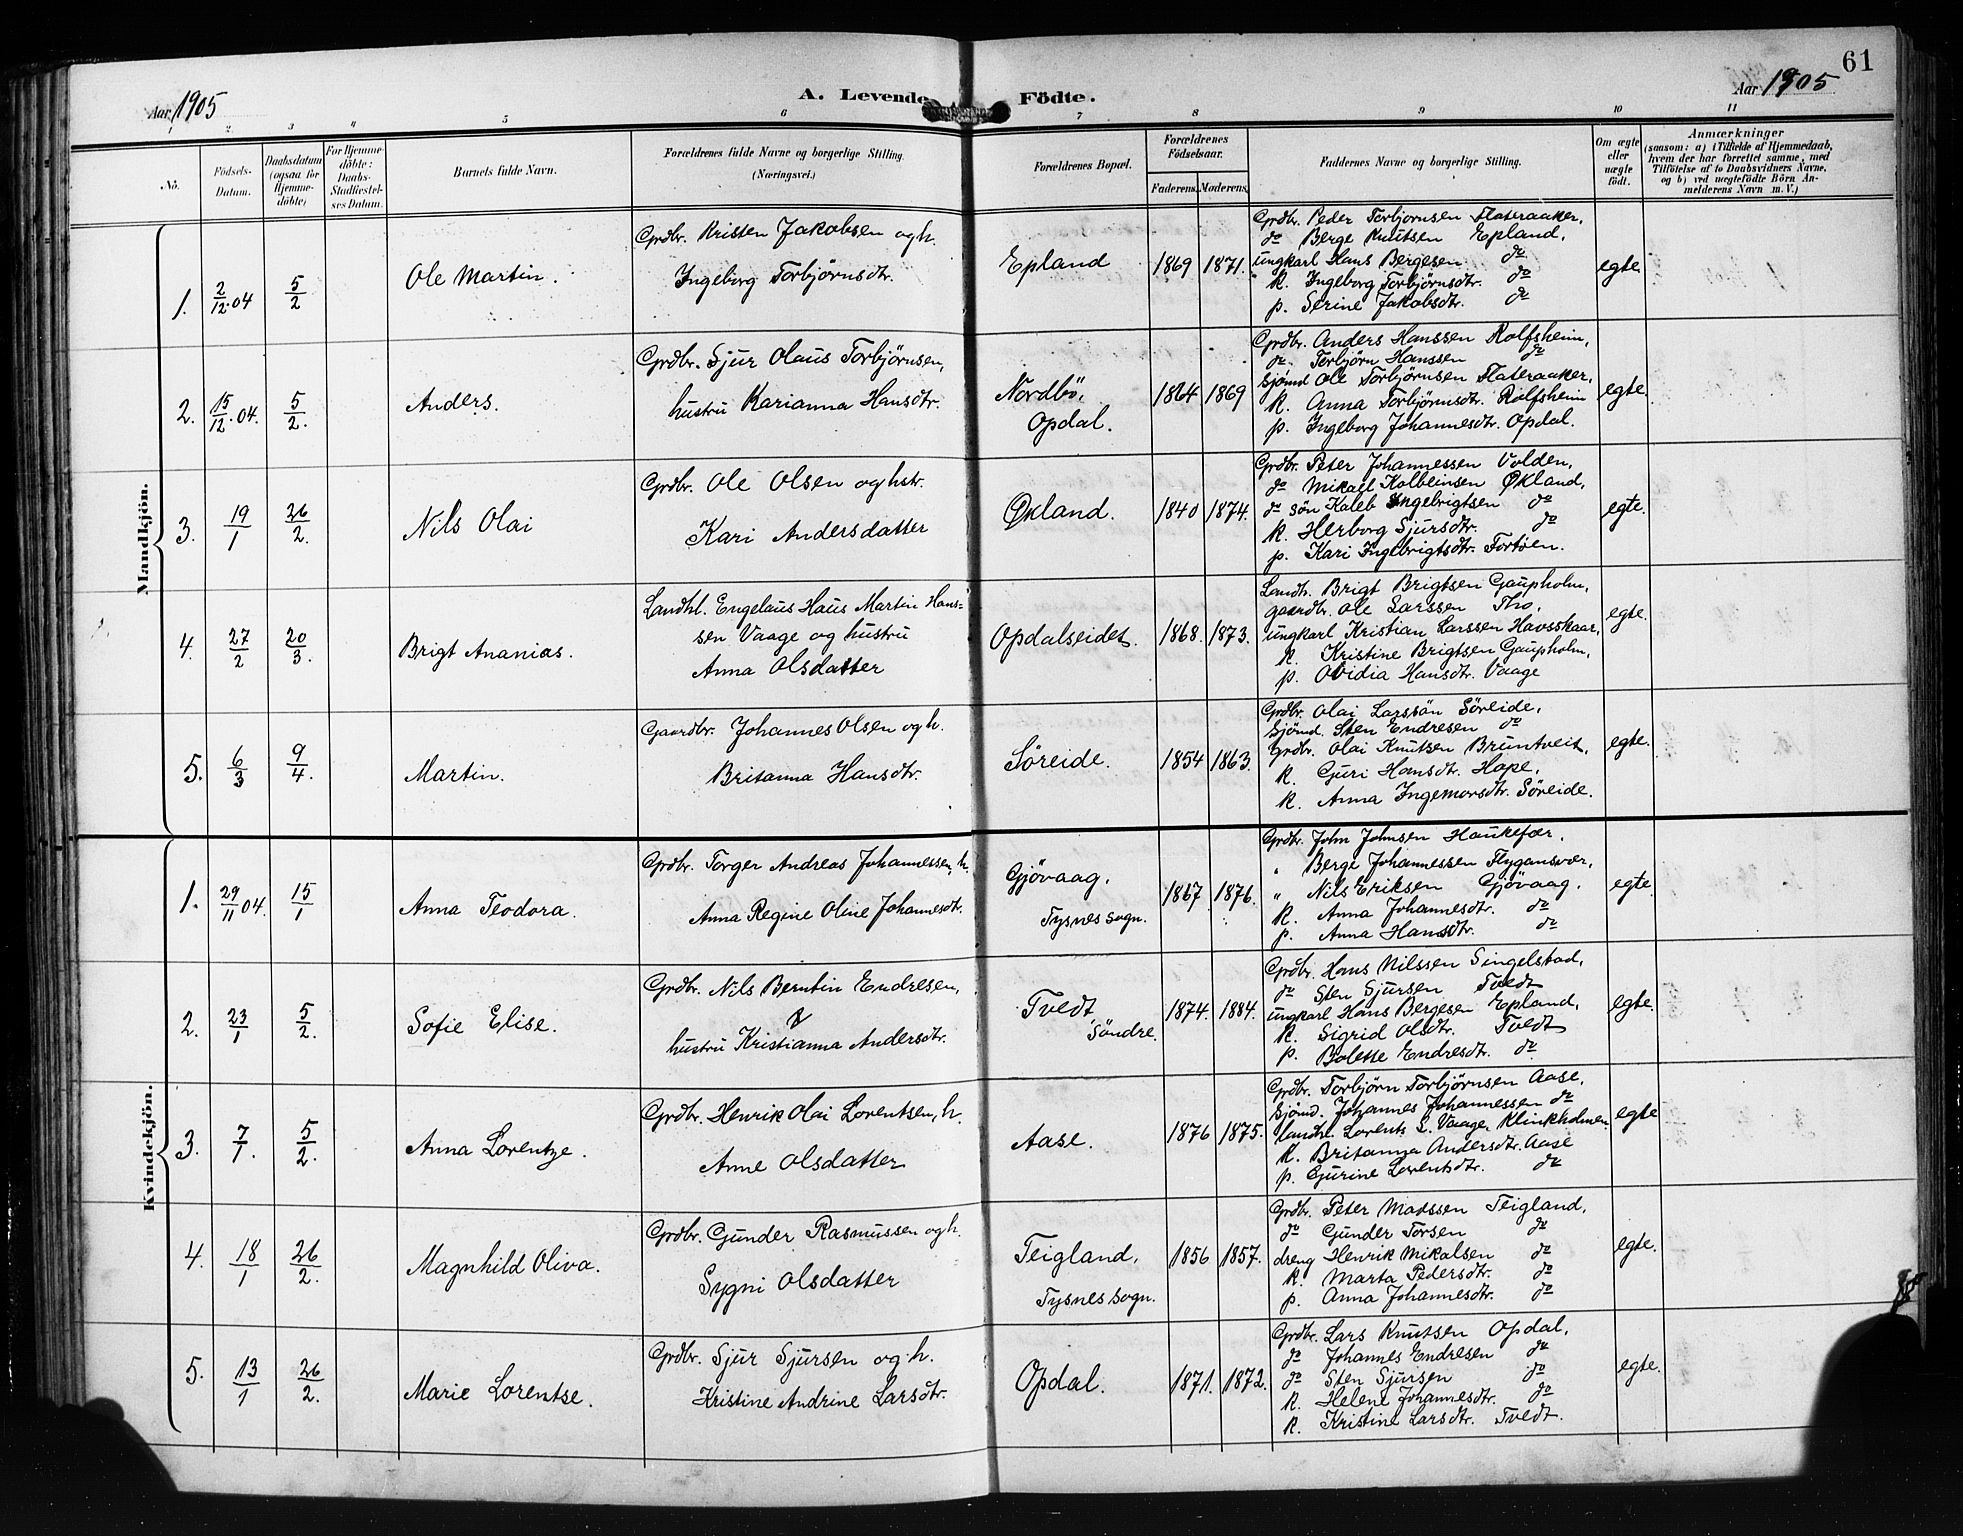 61
Aar 1905
A. Levende Födte.
Aar 1905
1 2 3 4 5 6 7 8 9 10 11
No.
Födsels-Datum.
Daabsdatum (ogsaa for Hjemme-döbte)
For Hjemme-döbte: Daabs-Stadfæstel-ses Datum.
Barnets fulde Navn.
Forældrenes fulde Navne og borgerlige Stilling.
(Næringsvei.)
Forældrenes Bopæl.
Forældrenes Födselsaar.
Faderens. Moderens.
Faddernes Navne og borgerlige Stilling.
Om ægte eller uægte födt.
Anmærkninger
(saasom: a) i Tilfælde af Hjemmedaab,
hvem der har forrettet samme, med
Tilföielse af to Daabsvidners Navne,
og b) ved uægtefödte Börn An-
melderens Navn m. V.)
Mandkjön.
1. 2/12.04 5/2 Ole Martin.
Grdbr. Kristen Jakobsen og h.
Ingeborg Torbjørnsdtr.
Epland 1869 1871.
Grdbr. Peder Torbjornsen Flateraaker,
do Berge Knutsen Epland,
ungkarl Hans Bergesen do
K. Ingeborg Torbjörnsdtr. do
p. Serine Jakobsdtr. do
egte
2. 15/12.04. 5/2. Anders.
Grdbr. Sjur Olaus Torbjörnsen,
hustru Karianna Hansdtr.
Nordbö,
Opdal.
1864 1869
Grdbr. Anders Hanssen Rolfsheim,
do. Torbjörn Hanssen do
Sjömd Ole Torbjörnsen Flateraaker,
K. Anna Torbjörnsdtr. Rolfsheim
p. Ingeborg Johannesdtr. Opdal.
egte
3. 19/1 26/2. Nils Olai
Grdbr. Ole Olsen og hstr.
Kari Andersdatter
Økland. 1840 1874.
Grdbr. Peter Johannessen Volden,
do Mikael Kolbeinsen Økland,
do sön Kaleb Ingebrigtsen do
K. Herborg Sjursdtr. do
p. Kari Ingebrigtsdtr. Tortöen.
egte.
4. 27/2 20/3. Brigt Ananias.
Landhl. Engelaus Haus Martin Hans=
sen Vaage og hustru
Anna Olsdatter
Opdalseidet. 1868. 1873.
Landh. Brigt Brigtsen Gaupholm,
gaardbr. Ole Larssen Tho,
ungkarl Kristian Larssen Havsskaar,
K. Kristine Brigtsen Gaupholm,
p. Ovidia Hansdtr. Vaage
egte.
5. 6/3 9/4. Martin.
Gaardbr. Johannes Olsen og h.
Britanna Hansdtr.
Söreide. 1854 1863.
Grdbr. Olai Larssön Söreide,
Sjömd. Sten Endresen do
Grdbr. Olai Knutsen Bruntveit,
K. Guri Hansdtr. Hope,
K. Anna Ingemorsdtr. Söreide.
egte.
Kvindekjön.
1. 29/11 04. 15/1 Anna Teodora.
Grdbr. Torger Andreas Johannessen, h.
Anna Regine Oline Johannesdtr.
Gjövaag,
Tysnes sogn.
1867. 1876.
Grdbr. John Johnsen Haukefær,
" Berge Johannessen Flygansvær,
" Nils Eriksen Gjövaag,
K. Anna Johannesdtr. do
p. Anna Hansdtr. do
egte.
2. 23/1 5/2. Sofie Elise.
Grdbr. Nils Berntin Endresen,
hustru Kristianna Andersdtr.
Tvedt
Söndre.
1874. 1884.
Grdbr. Hans Nilssen Singelstad,
do Sten Sjursen Tvedt
ungkarl Hans Bergesen Epland,
K. Sigrid Olsdtr. Tvedt
p. Bolette Endresdtr. do
egte.
3. 7/1. 5/2. Anna Lorentze.
Grdbr. Henrik Olai Lorentsen, h.
Anne Olsdatter
Aase. 1876 1875.
Grdbr. Torbjörn Torbjörnsen Aase,
Sjömd. Johannes Johannessen do
landhl. Lorents L. Vaage, Klinkholmen
K. Britanna Andersdtr. Aase
p. Gurine Lorentsdtr. do
egte
4. 18/1 26/2. Magnhild Oliva.
Grdbr. Gunder Rasmussen og h.
Sygni Olsdatter
Teigland,
Tysnes sogn.
1856 1857.
Grdbr. Peter Madssen Teigland,
do Gunder Torsen do
dreng Henrik Mikalsen do
K. Marta Pedersdtr. do
p. Anna Johannesdtr. do
egte.
5. 13/1 26/2. Marie Lorentse.
Grdbr. Sjur Sjursen og h.
Kristine Andrine Larsdtr.
Opdal. 1871. 1872.
Grdbr. Lars Knutsen Opdal,
do Johannes Endresen do
do Sten Sjursen do
K. Helene Johannesdtr. do
K. Kristine Larsdtr. Tvedt.
egte.